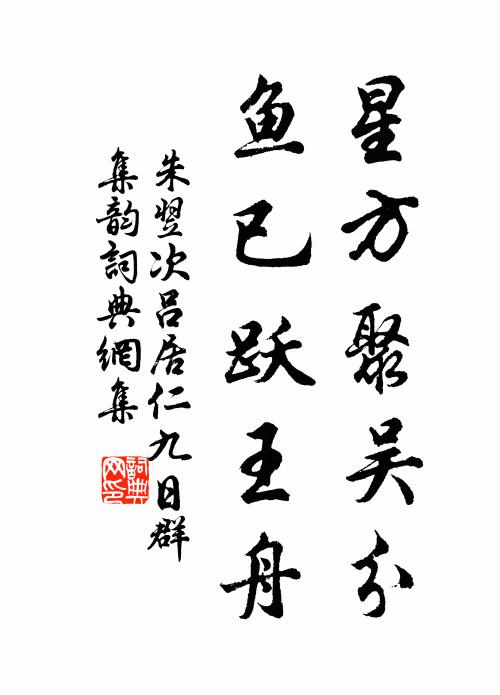 星方聚吴分
鱼已跃王舟
朱翌次吕居仁九日群
集韵詞典網集
詞典
网印